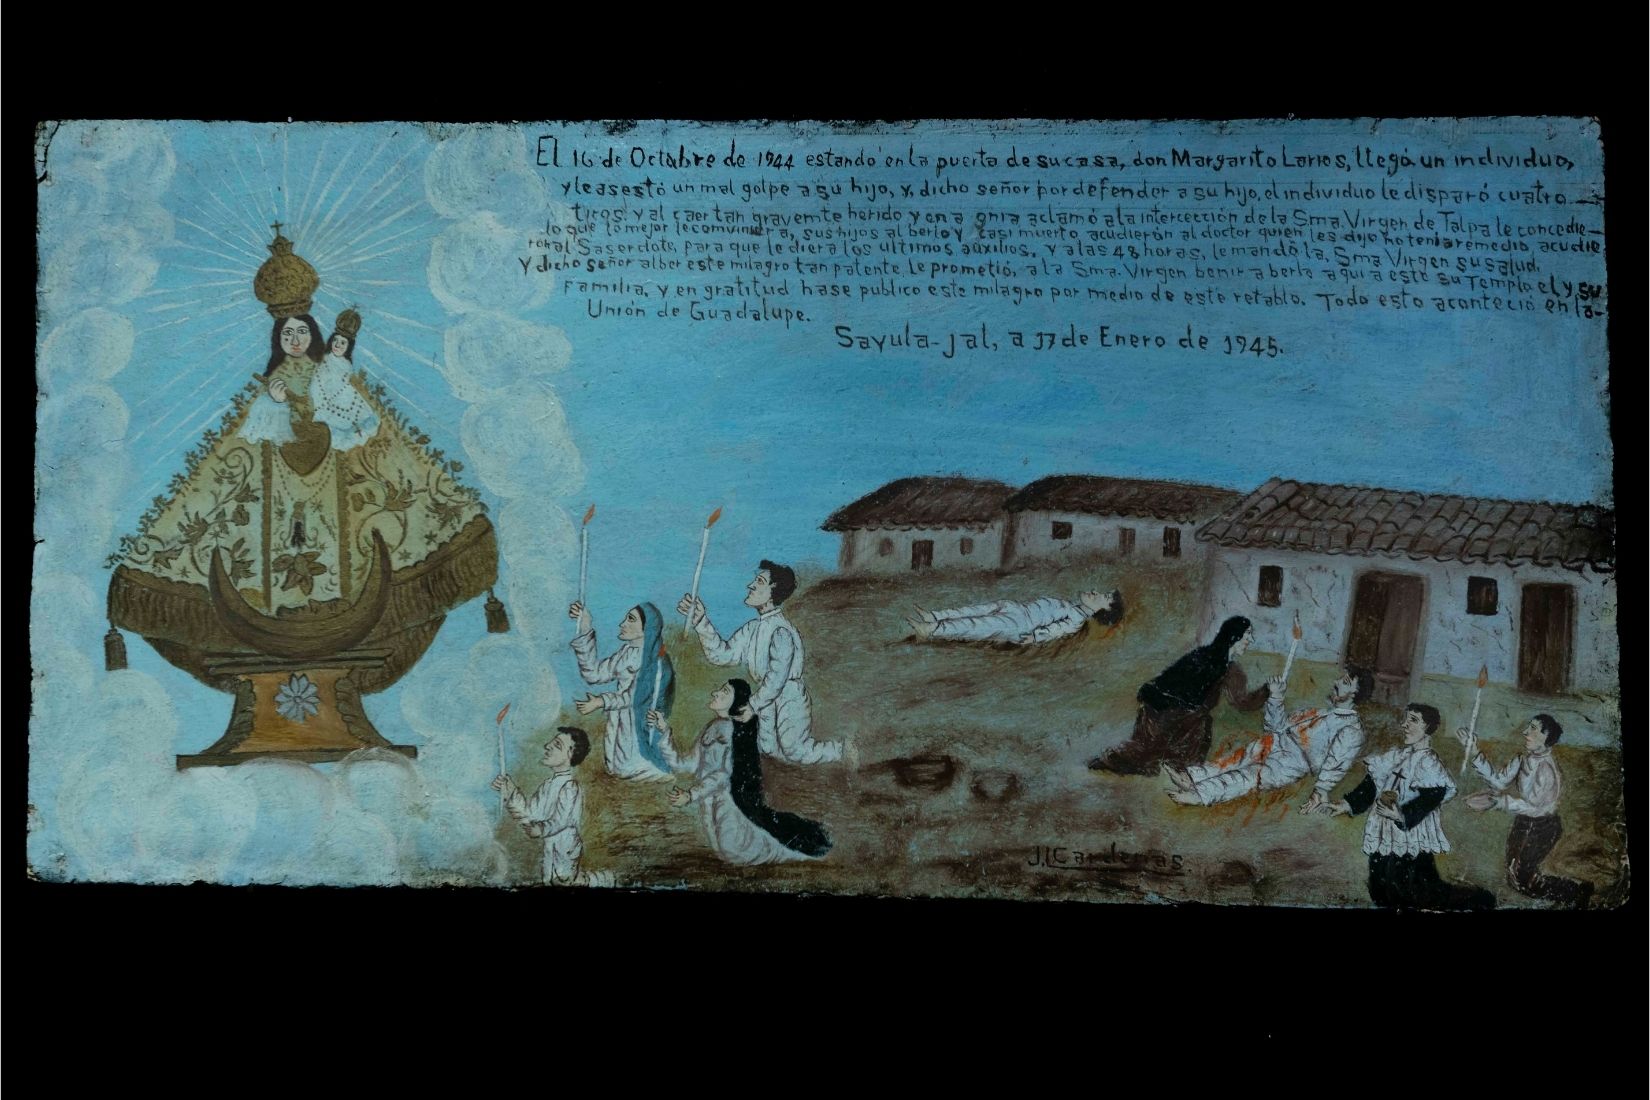 El 16 de Octubre de 1944 estando en la puerta de su casa, don Margarito Larios, llegó un individuo,
y le asestó un mal golpe a su hijo, y, dicho señor por defender a su hijo, el individuo le disparó cuatro
tiros, y al caer tan gravemte herido y en a gnia aclamó a la intercección de la Sma. Virgen de Talpa le concedie-
lo que lo mejor le combiniera, sus hijos al berlo y casi muerto acudierón al doctor quien les dijo no tenia remedio, acudie
ron al Saserdote, para que le diera los ultimos auxilios, y a las 48 horas, le mandó la, Sma Virgen su salud.
Y dicho señor al ber este milagro tan patente, le prometió, a la Sma. Virgen benir a berla aqui a este su Templo el y su
familia, y en gratitud hase publico este milagro por medio de este retablo. Todo esto aconteció en la-
Unión de Guadalupe.
Sayula-Jal, a 17 de Enero de 1945.
J.I Cardenas.